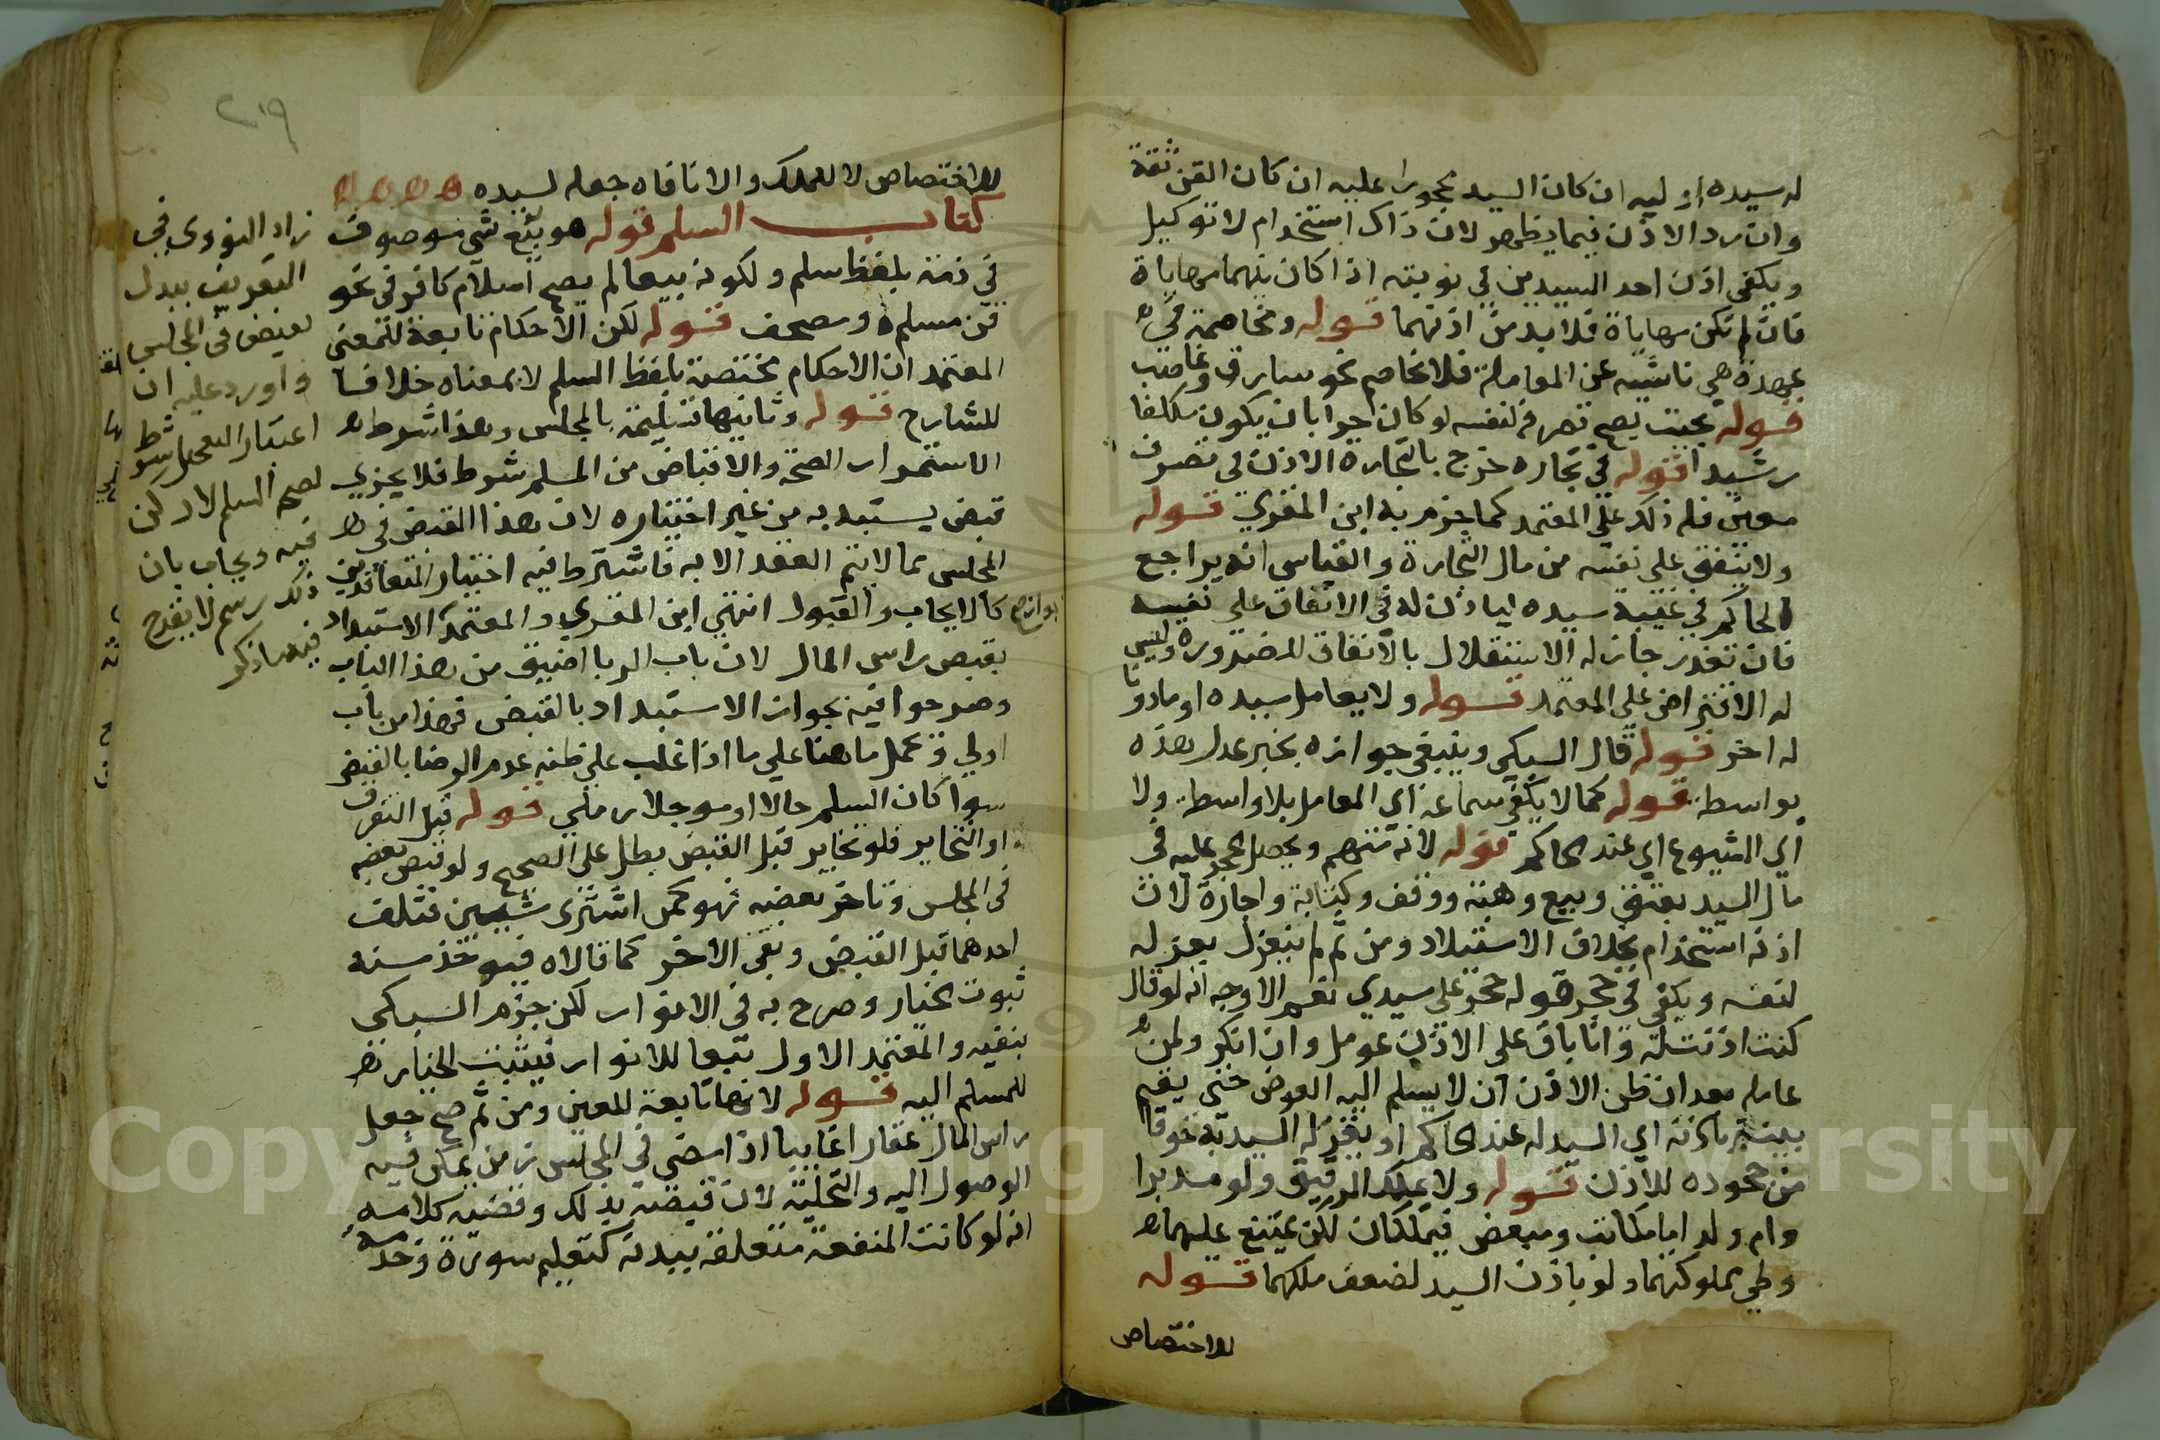 له سيده او ليه ان كان السيد محجورا عليه ان كان القن ثقة
وان رد الاذن فيما يظهر لان ذاك استخدام لا توكيل
ويكفي اذن احد السيدين في نوبته اذا كان بينهما مهاياة
فان لم تكن مهاياة فلا بد من اذنهما قوله ومخاصمة في ه
عهدة هي ناشية عن المعاملة فلا يخاصم نحو سارق وغاصب
قوله بحيث يصح تصرفه لنفسه لو كان حرا بان يكون مكلفا
رشيدا قوله في تجارة خرج بالتجارة الاذن في تصرف
معين فله ذلك على المعتمد كما جزم به ابن المقري قوله
ولا ينفق على نفسه من مال التجارة والقياس انه يراجع
الحاكم في غيبة سيده لياذن له في الانفاق على نفسه
فان تعذر جاز له الاستقلال بالانفاق للضرورة وليس
له الاقتراض على المعتمد قوله ولا يعامل سيده او ماذونا
له اخر قوله قال السبكي وينبغي جوازه بخبر عدل هذه
بواسطة قوله كما لا يكفي سماعه اي المعامل بلا واسطة ولا
اي الشيوع اي عند الحاكم قوله لانه متهم ويحصل الحجر عليه في
مال السيد بعتق وبيع وهبة ووقف وكتابة واجارة لان
اذنه استخدام بخلاف الاستيلاد ومن ثم لم ينعزل بعزله
لنفسه ويكفي في حجر قوله حجر على سيدي نعم الاوجه انه لو قال
كنت اذنت له وانا باق على الاذن عومل وان انكر ولمن ه
عامله بعد ان ظن الاذن ان لا يسلم اليه العوض حتى يقيم
بينة باذنه اي السيد له عند الحاكم او يقر له السيد به خوفا
من جحوده للاذن قوله ولا يملك الرقيق ولو مدبرا
وام ولد اما مكاتب ومبعض فيملكان لكن يمتنع عليهما ه
وطي مملوكتهما ولو باذن السيد لضعف ملكهما قوله
للاختصاص
٢١٩
للاختصاص لا للملك والا نافاه جعله لسيده ه ه ه ه
كتاب السلم قوله هو بيع شي موصوف
في ذمة بلفظ سلم ولكونه بيعا لم يصح اسلام كافر في نحو
قن مسلم ه ومصحف قوله لكن الاحكام تابعة للمعنى
المعتمد ان الاحكام مختصة بلفظ السلم لا بمعناه خلافا
للشارح قوله وثانيها تسليمه بالمجلس وهذا شرط ه
الاستمرار الصحة والاقباض من المسلم شرط فلا يجزي
قبض يستبد به من غير اختياره لان هذا القبض في ه
المجلس مما لا يتم العقد الا به فاشترط فيه اختيار المتعاقدين
كالايجاب والقبول انتهى ابن المقري والمعتمد الاستبداد
بقبض راس المال لان باب الربا اضيق من هذا الباب
وصرحوا فيه بجواز الاستبداد بالقبض فهذا من باب
اولى ويحمل ما هنا على ما اذا غلب على ظنه عدم الرضا بالقبض
سوا كان السلم حالا او موجلا رملي قوله قبل التفرق
او التخاير فلو تخاير قبل القبض بطل على الصحيح ولو قبض بعضه
في المجلس وتاخر بعضه فهو كمن اشترى شيين فتلف
احدهما قبل القبض وبقي الاخر كما قالاه فيوخذ منه
ثبوت الخيار وصرح به في الانوار لكن جزم السبكي
بنفيه والمعتمد الاول تبعا للانوار فيثبت الخيار ه
للمسلم اليه قوله لانها تابعة للعين ومن ثم صح جعل
راس المال عقارا غايبا اذا مضى في المجلس زمن يمكن فيه
الوصول اليه والتخلية لان قبضه بذلك وقضية كلامه
انه لو كانت المنفعة متعلقة ببدنه كتعليم سورة وخدمته
زاد النووي في
التعريف ببدل
يعيض في المجلس
واورد عليه ان
اعتبار التعجيل شرط
لصحة السلم لا ركن
فيه ويجاب بان
ذلك رسم لا يقدح
فيه ما ذكر